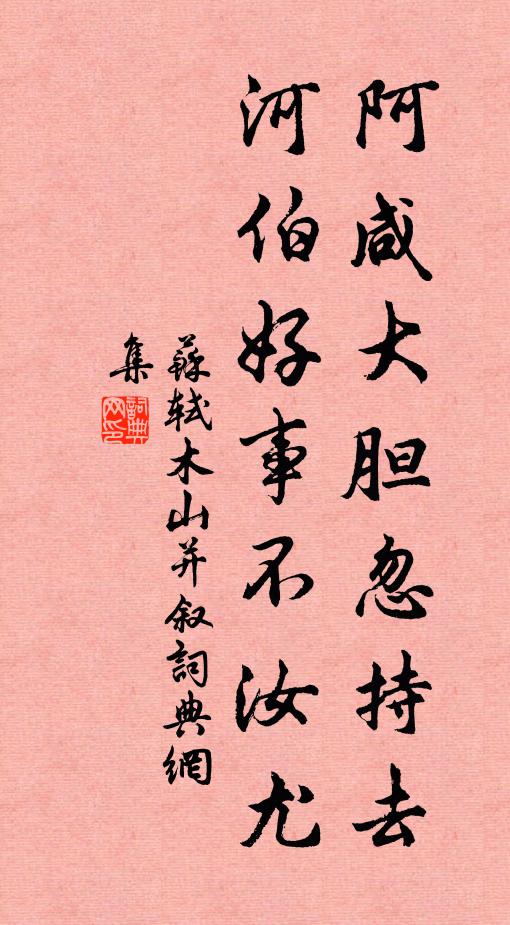 阿咸大胆忽持去
河伯好事不汝尤
蘇軾木山并叙詞典網
集
詞典
网印